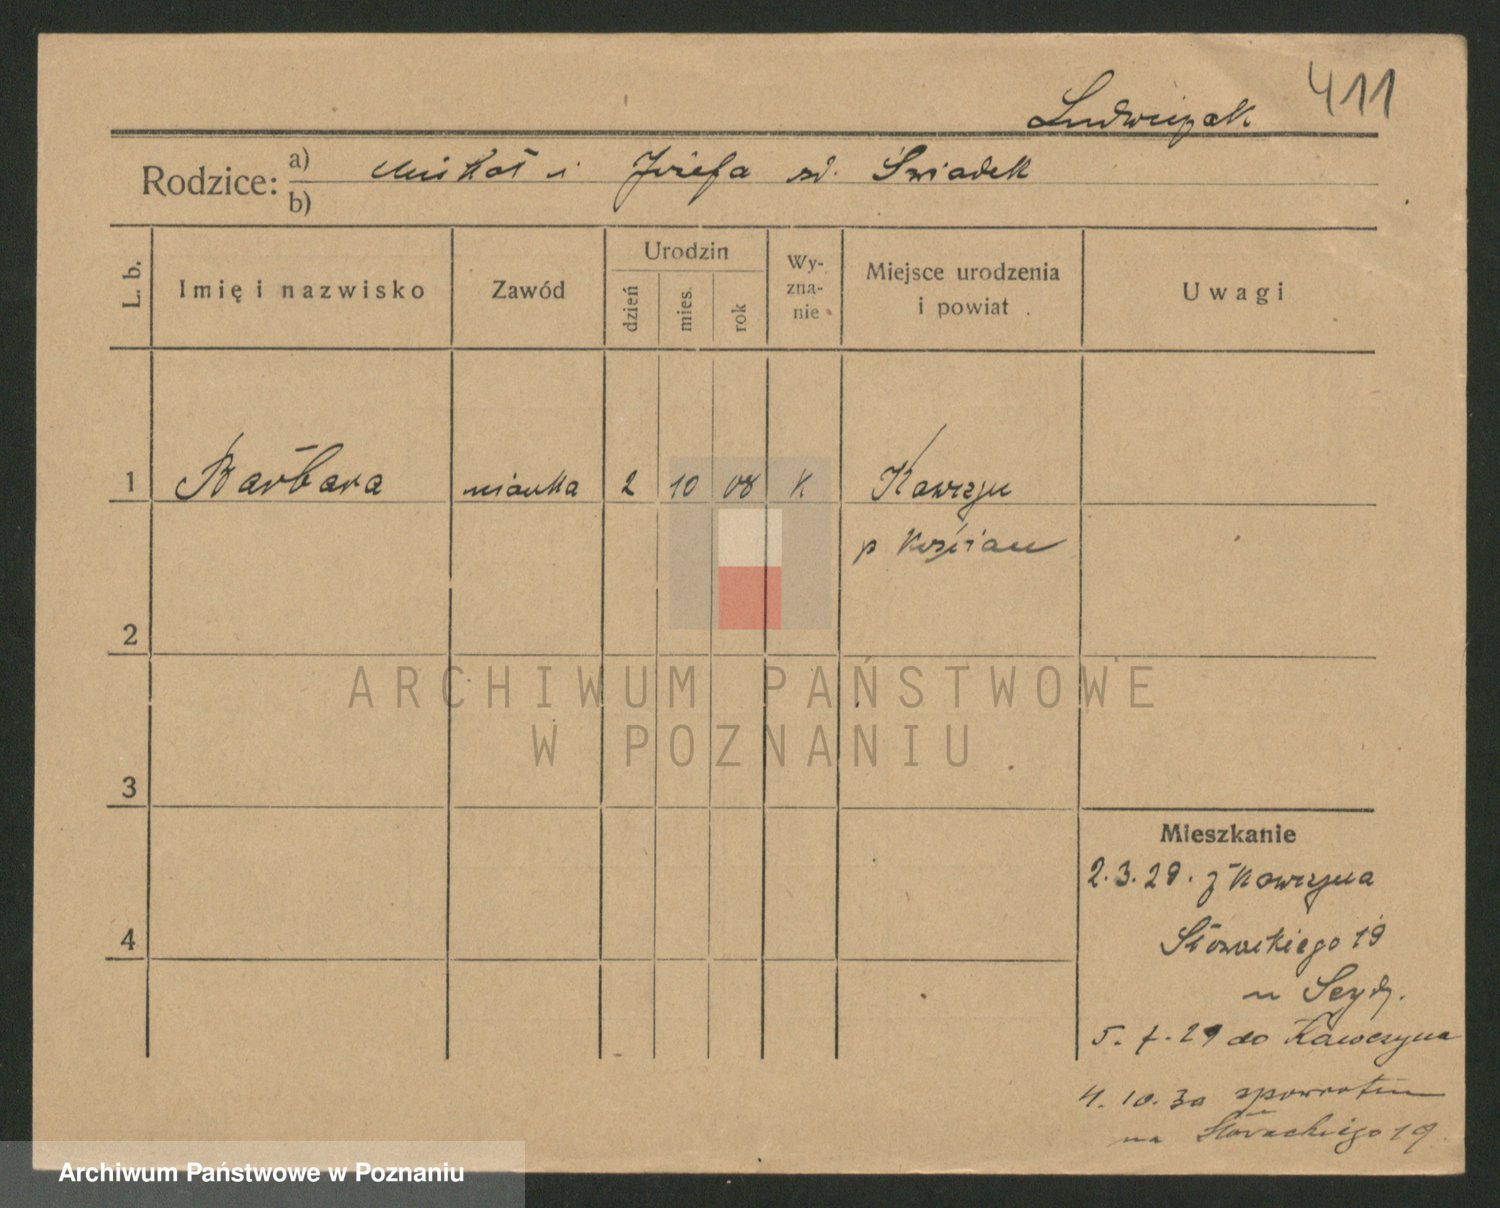 411
Ludwiczak
Rodzice: a) Mikoł i Józefa zd. Świadek
b)
L. b.
Imię i nazwisko
Zawód
Urodzin
dzień
mies.
rok
Wy-
zna-
nie
Miejsce urodzenia
i powiat
Uwagi
1 Barbara nianka 2 10 08 K Kawczyn
p Kościan
2
ARCHIWUM PAŃSTWOWE
W POZNANIU
3
Mieszkanie
2.3.29. z Kawczyna
4
Słowackiego 19
u
5. 7. 29 do Kawczyna
4. 10. 30 spowrotem
na Słowackiego 19
Archiwum Państwowe w Poznaniu